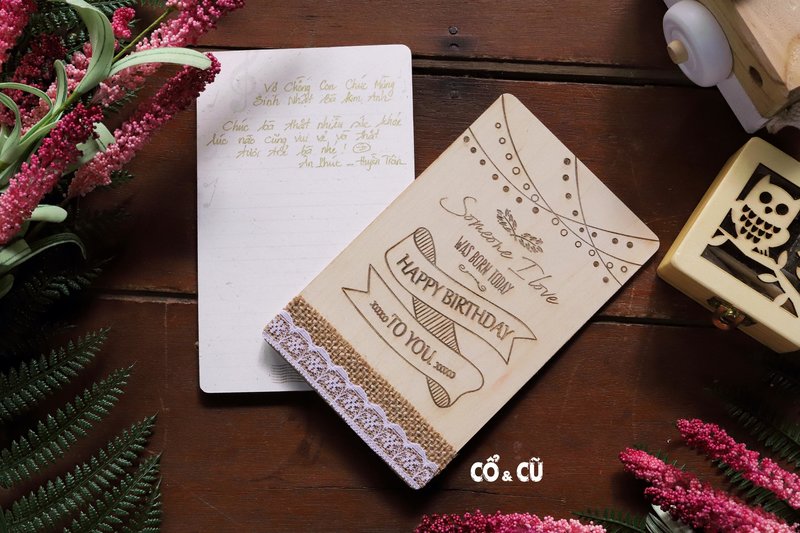 Vợ Chồng Con Chúc Mừng
Sinh Nhật Bà Kim Anh!
Chúc bà thật nhiều sức khoẻ
lúc nào cũng vui vẻ và thật
tươi trẻ bà nhé!
An Phúc - Huyền Trân
Someone I love
WAS BORN TODAY
HAPPY BIRTHDAY
TO YOU
CỔ & CŨ